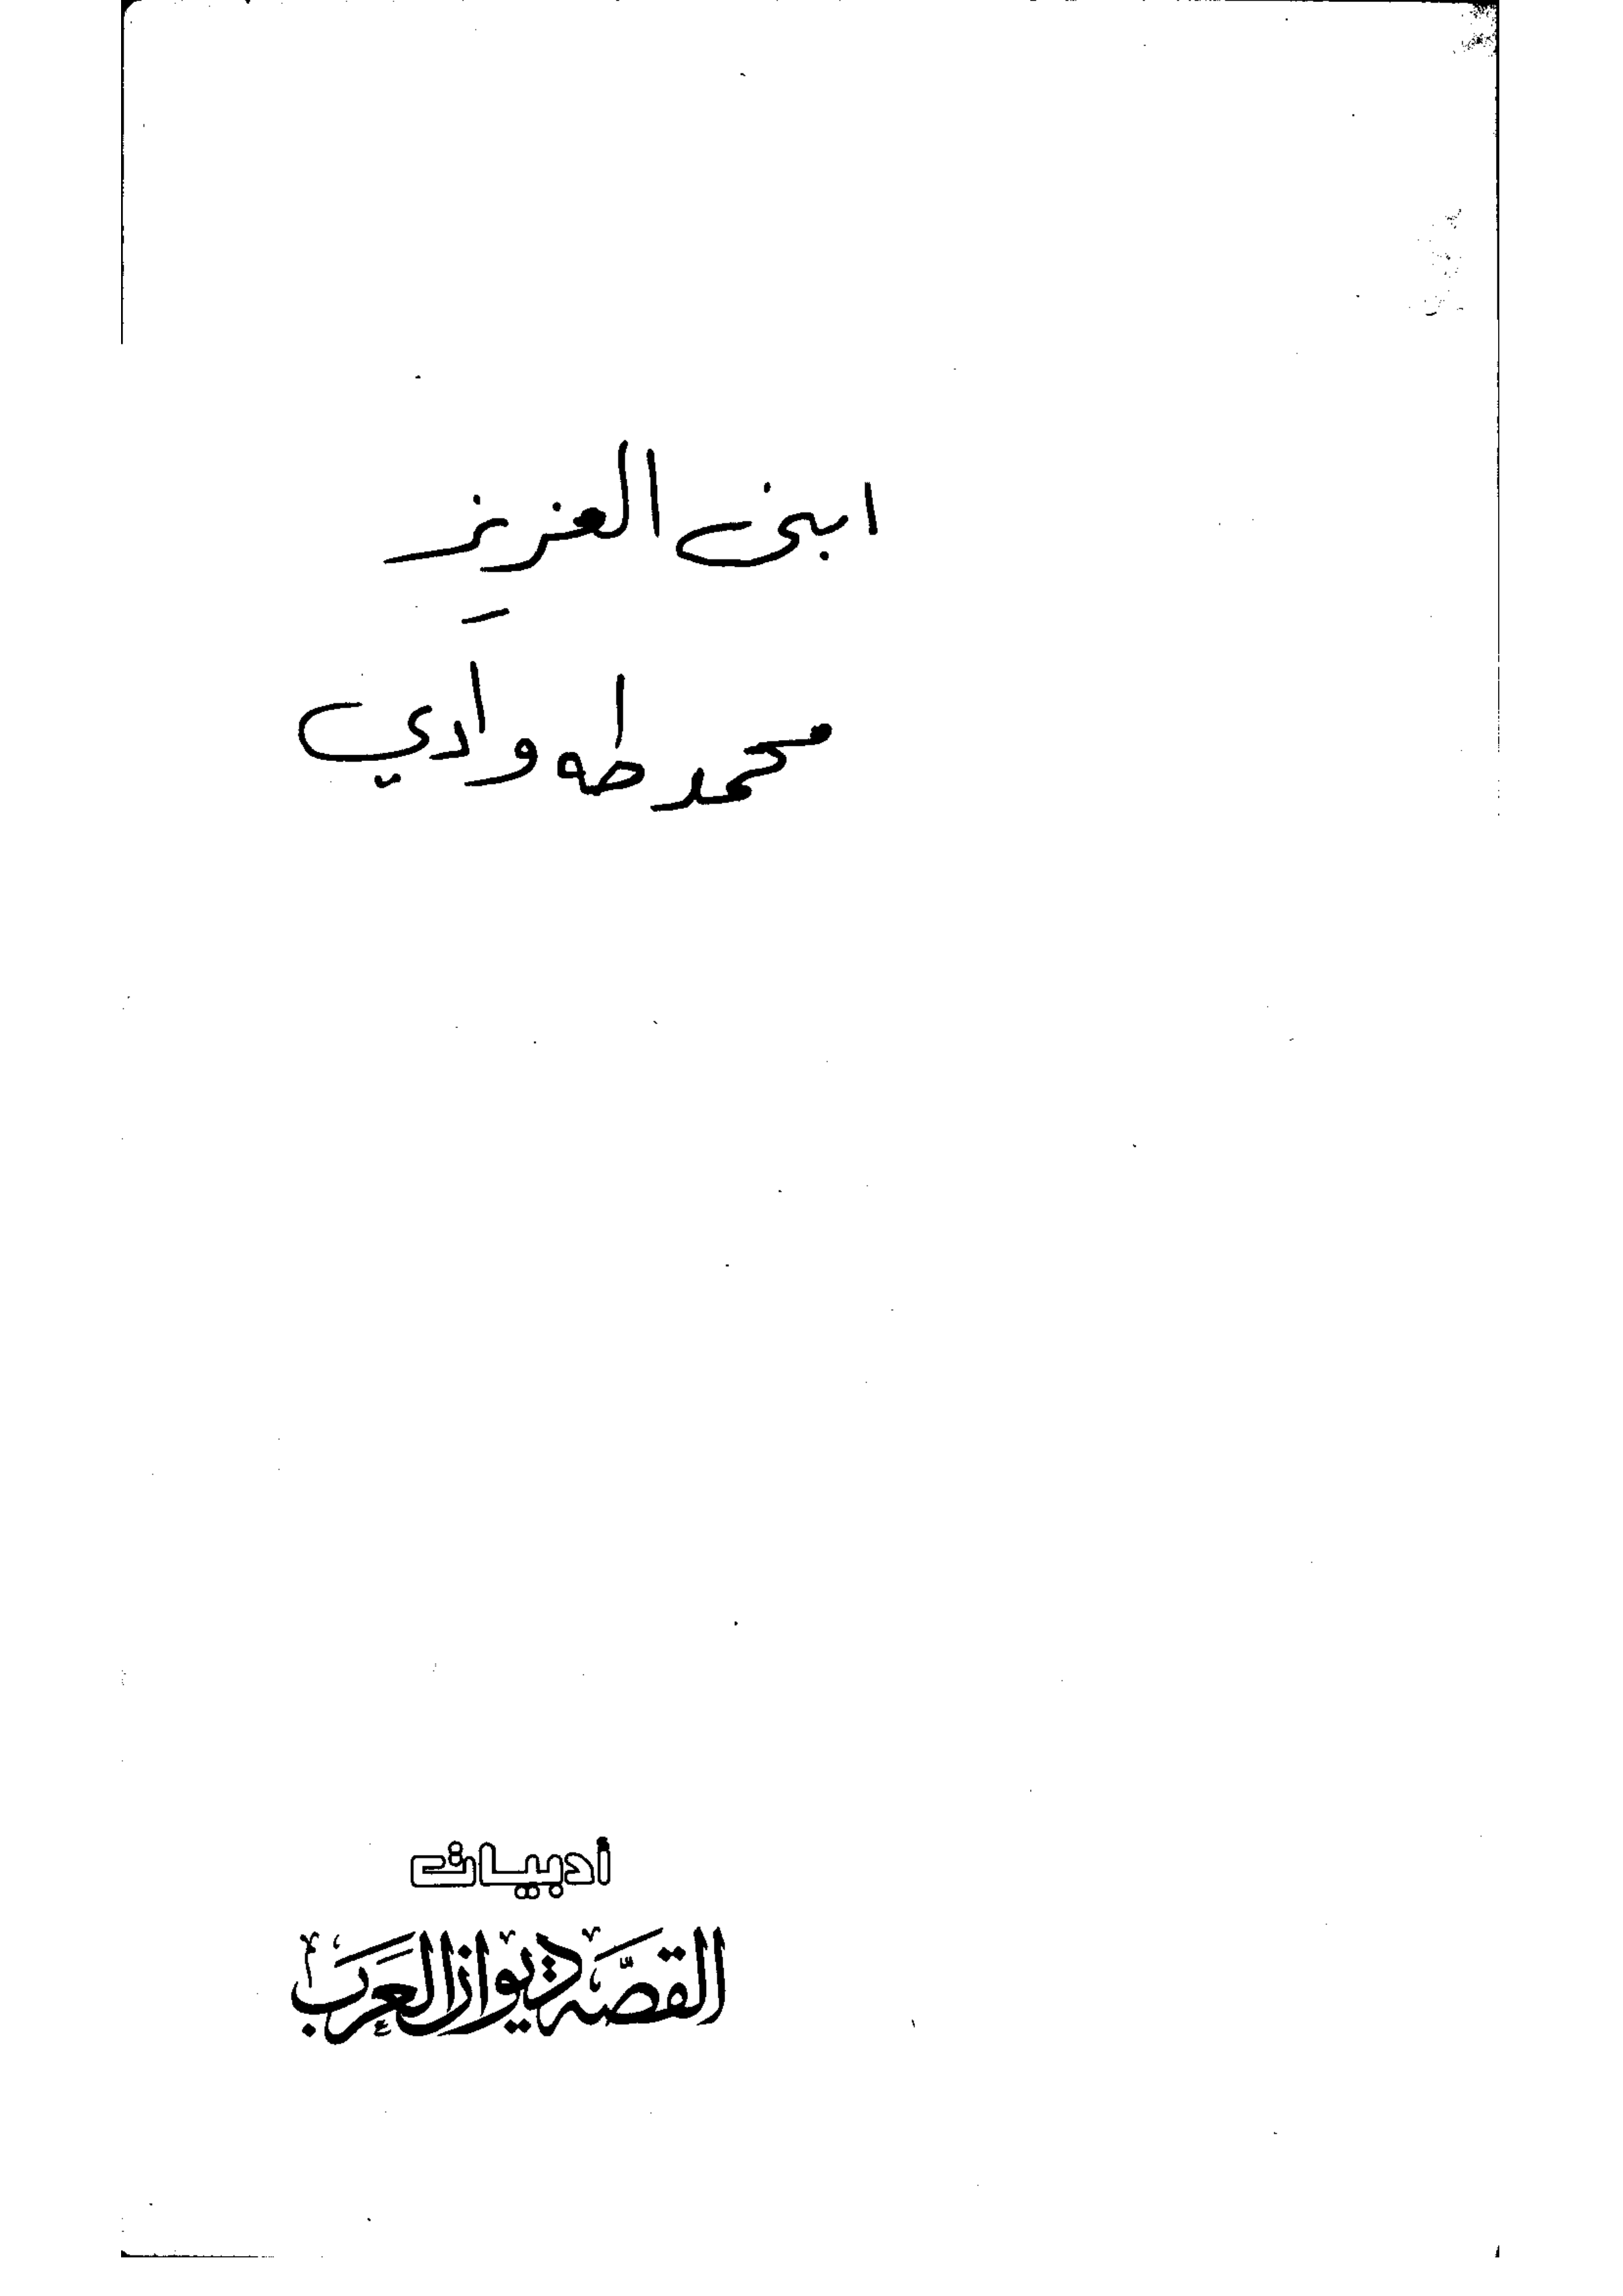 ابنى العزيز
محمد طه وادي
أدبيات
القصَّة ديوان العَرَب